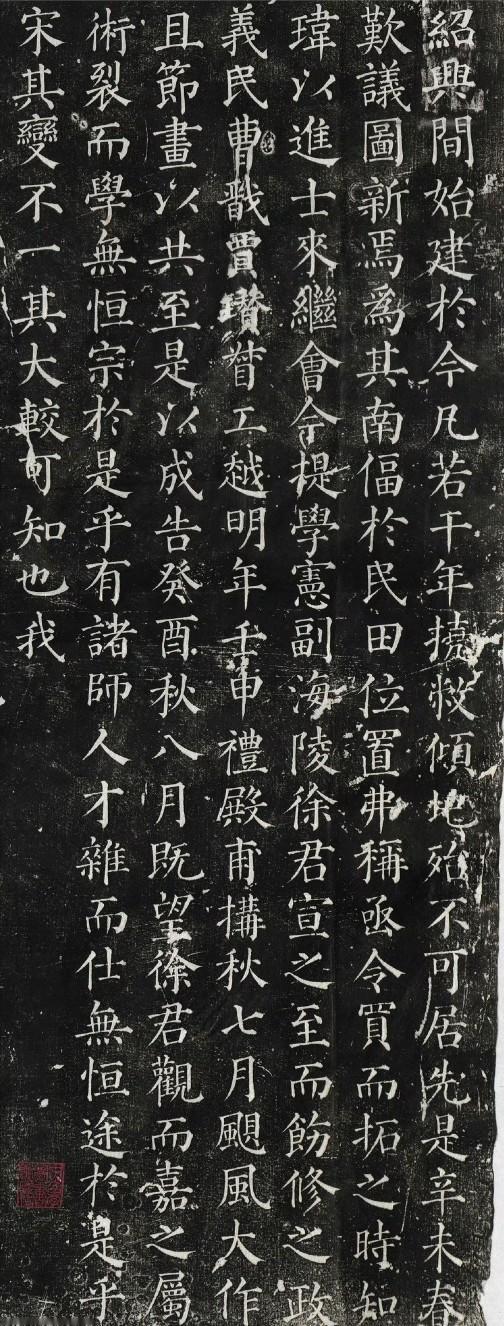 紹興間始建於今凡若干年撓敗傾地殆不可居先是辛未春
歎議圖新焉為其南偪於民田位置弗稱亟令買而拓之時知
瑋以進士來繼會今提學憲副海陵徐君宣之至而飭修之政
義民曹戩賈瓚督工越明年壬申禮殿甫搆秋七月颶風大作
且節畫以共至是以成告癸酉秋八月既望徐君觀而嘉之屬
術裂而學無恒宗於是乎有諸師人才雜而仕無恒途於是乎
宋其變不一其大較可知也我